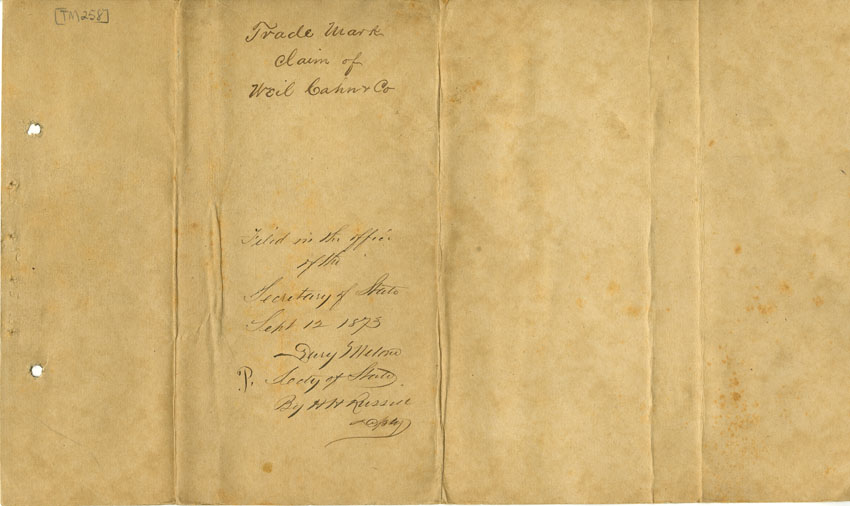 [TM258]
Trade Mark
Claim of
Weil Cahn & Co
Filed in the office
of the
Secretary of State
Sept 12 1873
Drury Melone
Secty of State
By H H Russell
Dpty